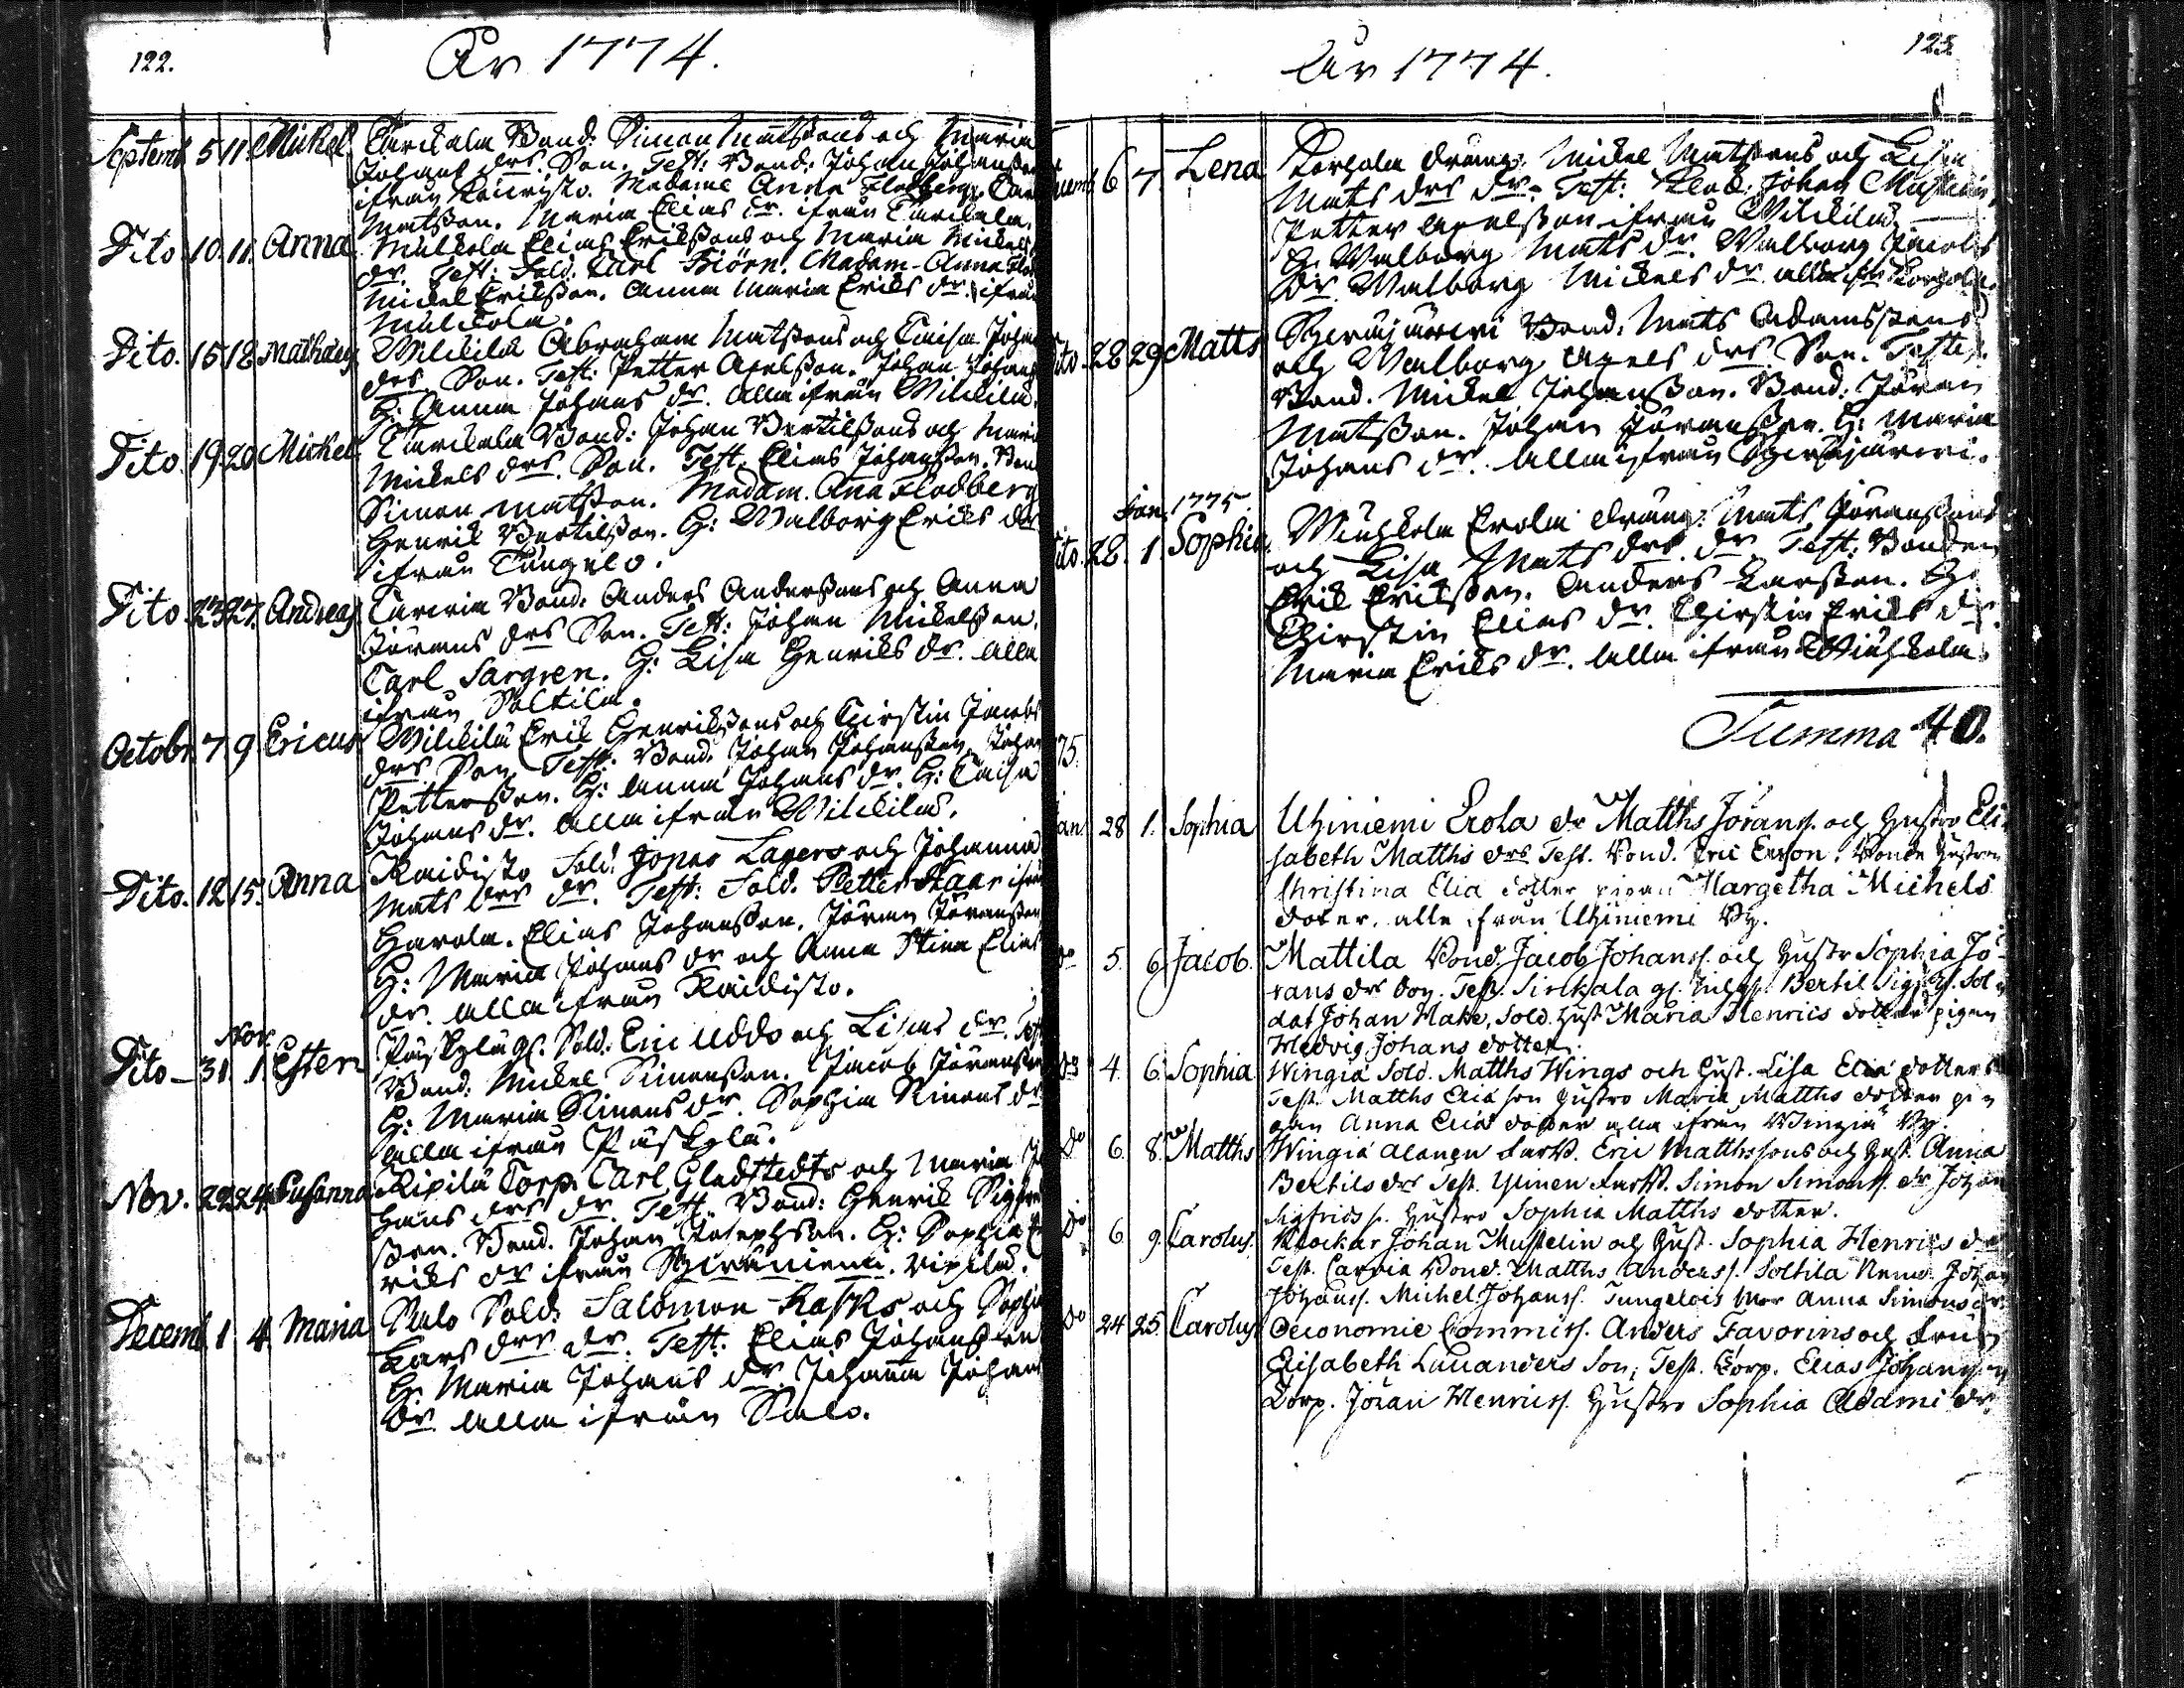 122.
År 1774.
Septemb 5 11 Mickel Carckala Bond: Simon Matssons och Maria
Johans drs Son. Test: Bond: Johan Johansson
ifrån Madame Anna Flodberg.
Matsson. Maria Elias dr. ifrån Carckala.
Dito 10. 11. Anna Mulkola Elias Erikssons och Maria Mickels
dr. Test: Sold. Carl Biörn. Madam Anna
Mickel Eriksson. Anna Maria Eriks dr. ifrån
Mulkola.
Dito. 15 18 Mathæus Wilckilä Abraham Matssons och Caisa Johans
drs Son. Test: Petter Axelsson. Johan Johans
H: Anna Johans dr. alla ifrån Wilckilä.
Dito. 19. 20 Mickel Carckala Bond: Johan Bertilssons och Maria
Mickels drs. Son. Test. Elias Johansson. Bond
Simon Matsson. Madam. Ana Flodberg
Henrik Bertilsson. H: Walborg Eriks dr
ifrån Tångelo.
Dito 23 27. Andreas Carvia Bond. Anders Anderssons och Anna
Jörans drs Son. Test: Johan Mickelsson.
Carl Sargren. H: Lisa Henriks dr. alla
ifrån Soltila.
Octobr. 7. 9 Ericus Wilckilä Erik Henrikssons och Chirstin Jacobs
drs Son. Test: Bond. Johan Johansson. Johan
Pettersson. H: Anna Johans dr. H: Caisa
Johans dr. alla ifrån Wilckilä.
Dito. 12 15. Anna Raidisto Sold: Jonas Lagers och Johanna
Mats drs dr. Test: Sold. Petter Haar ifrån
Harola. Elias Johansson. Jöran Jöransson
H: Maria Johans dr och Anna Stina Elias
dr. alla ifrån Raidisto.
Nov.
Dito — 31. 1. Ester gl. Sold. Eric Uddo och Lisas dr. Test
Bond: Mickel Simonsson. Jacob Jöransson
H: Maria Simons dr. Sophia Simons dr
alla ifrån
Nov. 22 24. Susanna Ripilä Corp. Carl Gladstedts och Maria
hans drs dr. Test. Bond: Henrik Sigfrids
son. Bond. Johan Josephson. H: Sophia E
riks dr ifrån
Decemb 1 4. Maria Salo Sold: Salomon Rasks och Sophia
Lars drs dr. Test: Elias Johansson
H. Maria Johans dr. Johanna Johans
dr alla ifrån Salo.
År 1774.
6 7. Lena Korhola dräng. Mickel Matssons och Lisa
Mats drs dr. Test: Klock. Johan Mustelin,
Petter Axelsson ifrån Wilckilä
H: Walborg Mats dr. Walborg Jacobs
dr. Walborg Mickels dr. alla ifr Korhola.
28 29 Matts Bond. Mats Adamssons
och Walborg Axels drs. Son. Test.
Bond. Mickel Johansson. Bond: Jöran
Matsson. Johan Jöransson. H: Maria
Johans dr. alla ifrån
Jan. 1775.
28. 1. Sophia Erola dräng. Mats Jöranssons
och Lisa Mats drs. dr. Test: Bonden
Erik Eriksson. Anders Larsson. H:
Chirstin Elias dr. Chirstin Eriks dr.
Maria Eriks dr. alla ifrån
Summa 40.
75.
Jan. 28 1. Sophia Uhiniemi Erola dr Matths Jöranss. och Hustro Eli
sabeth Matths drs Test. Bond. Eric Ersson. Bonde Hustron
Christina Elia dotter pigan Margetha Michels
doter, alle ifrån Uhiniemi By.
do 5. 6. Jacob. Mattila Bond. Jacob Johanss. och Hustr Sophia Jö
rans drs Son. Test. Sirckala gl. Bertil Sigfr. gl. Sol
dat Johan Hake, Sold. Hust Maria Henrics dotter pigan
Hedvig Johans dotter.
do 4. 6. Sophia Wingiä Sold. Matths Wings och Hust. Lisa Elia dotters
Test. Matths Elia son Hustro Maria Matths dotter pi
gan Anna Elia dotter alla ifrån Wingiä By.
Do 6. 8. Matths Wingiä Alanen Eric Matthssons och Hust. Anna
Bertils drs Test. Yllinen Simon Simonss. dr Johan
Sigfrids s. Hustro Sophia Matths dotter.
Do 6. 9. Carolus. Klockar Johan Mustelin och Hust. Sophia Henrics dr
Test. Carvia Bond. Matths Anderss. Soltila Johan
Johanss. Michel Johanss. Tungelois Mor Anna Simons dr.
Do 24 25 Carolus Oeconomie Commiss. Anders Favorins och Frus
Elisabeth Lauanders Son, Test. Corp. Elias Johansson
Corp. Jöran Henricss. Hustro Sophia Adami dr.